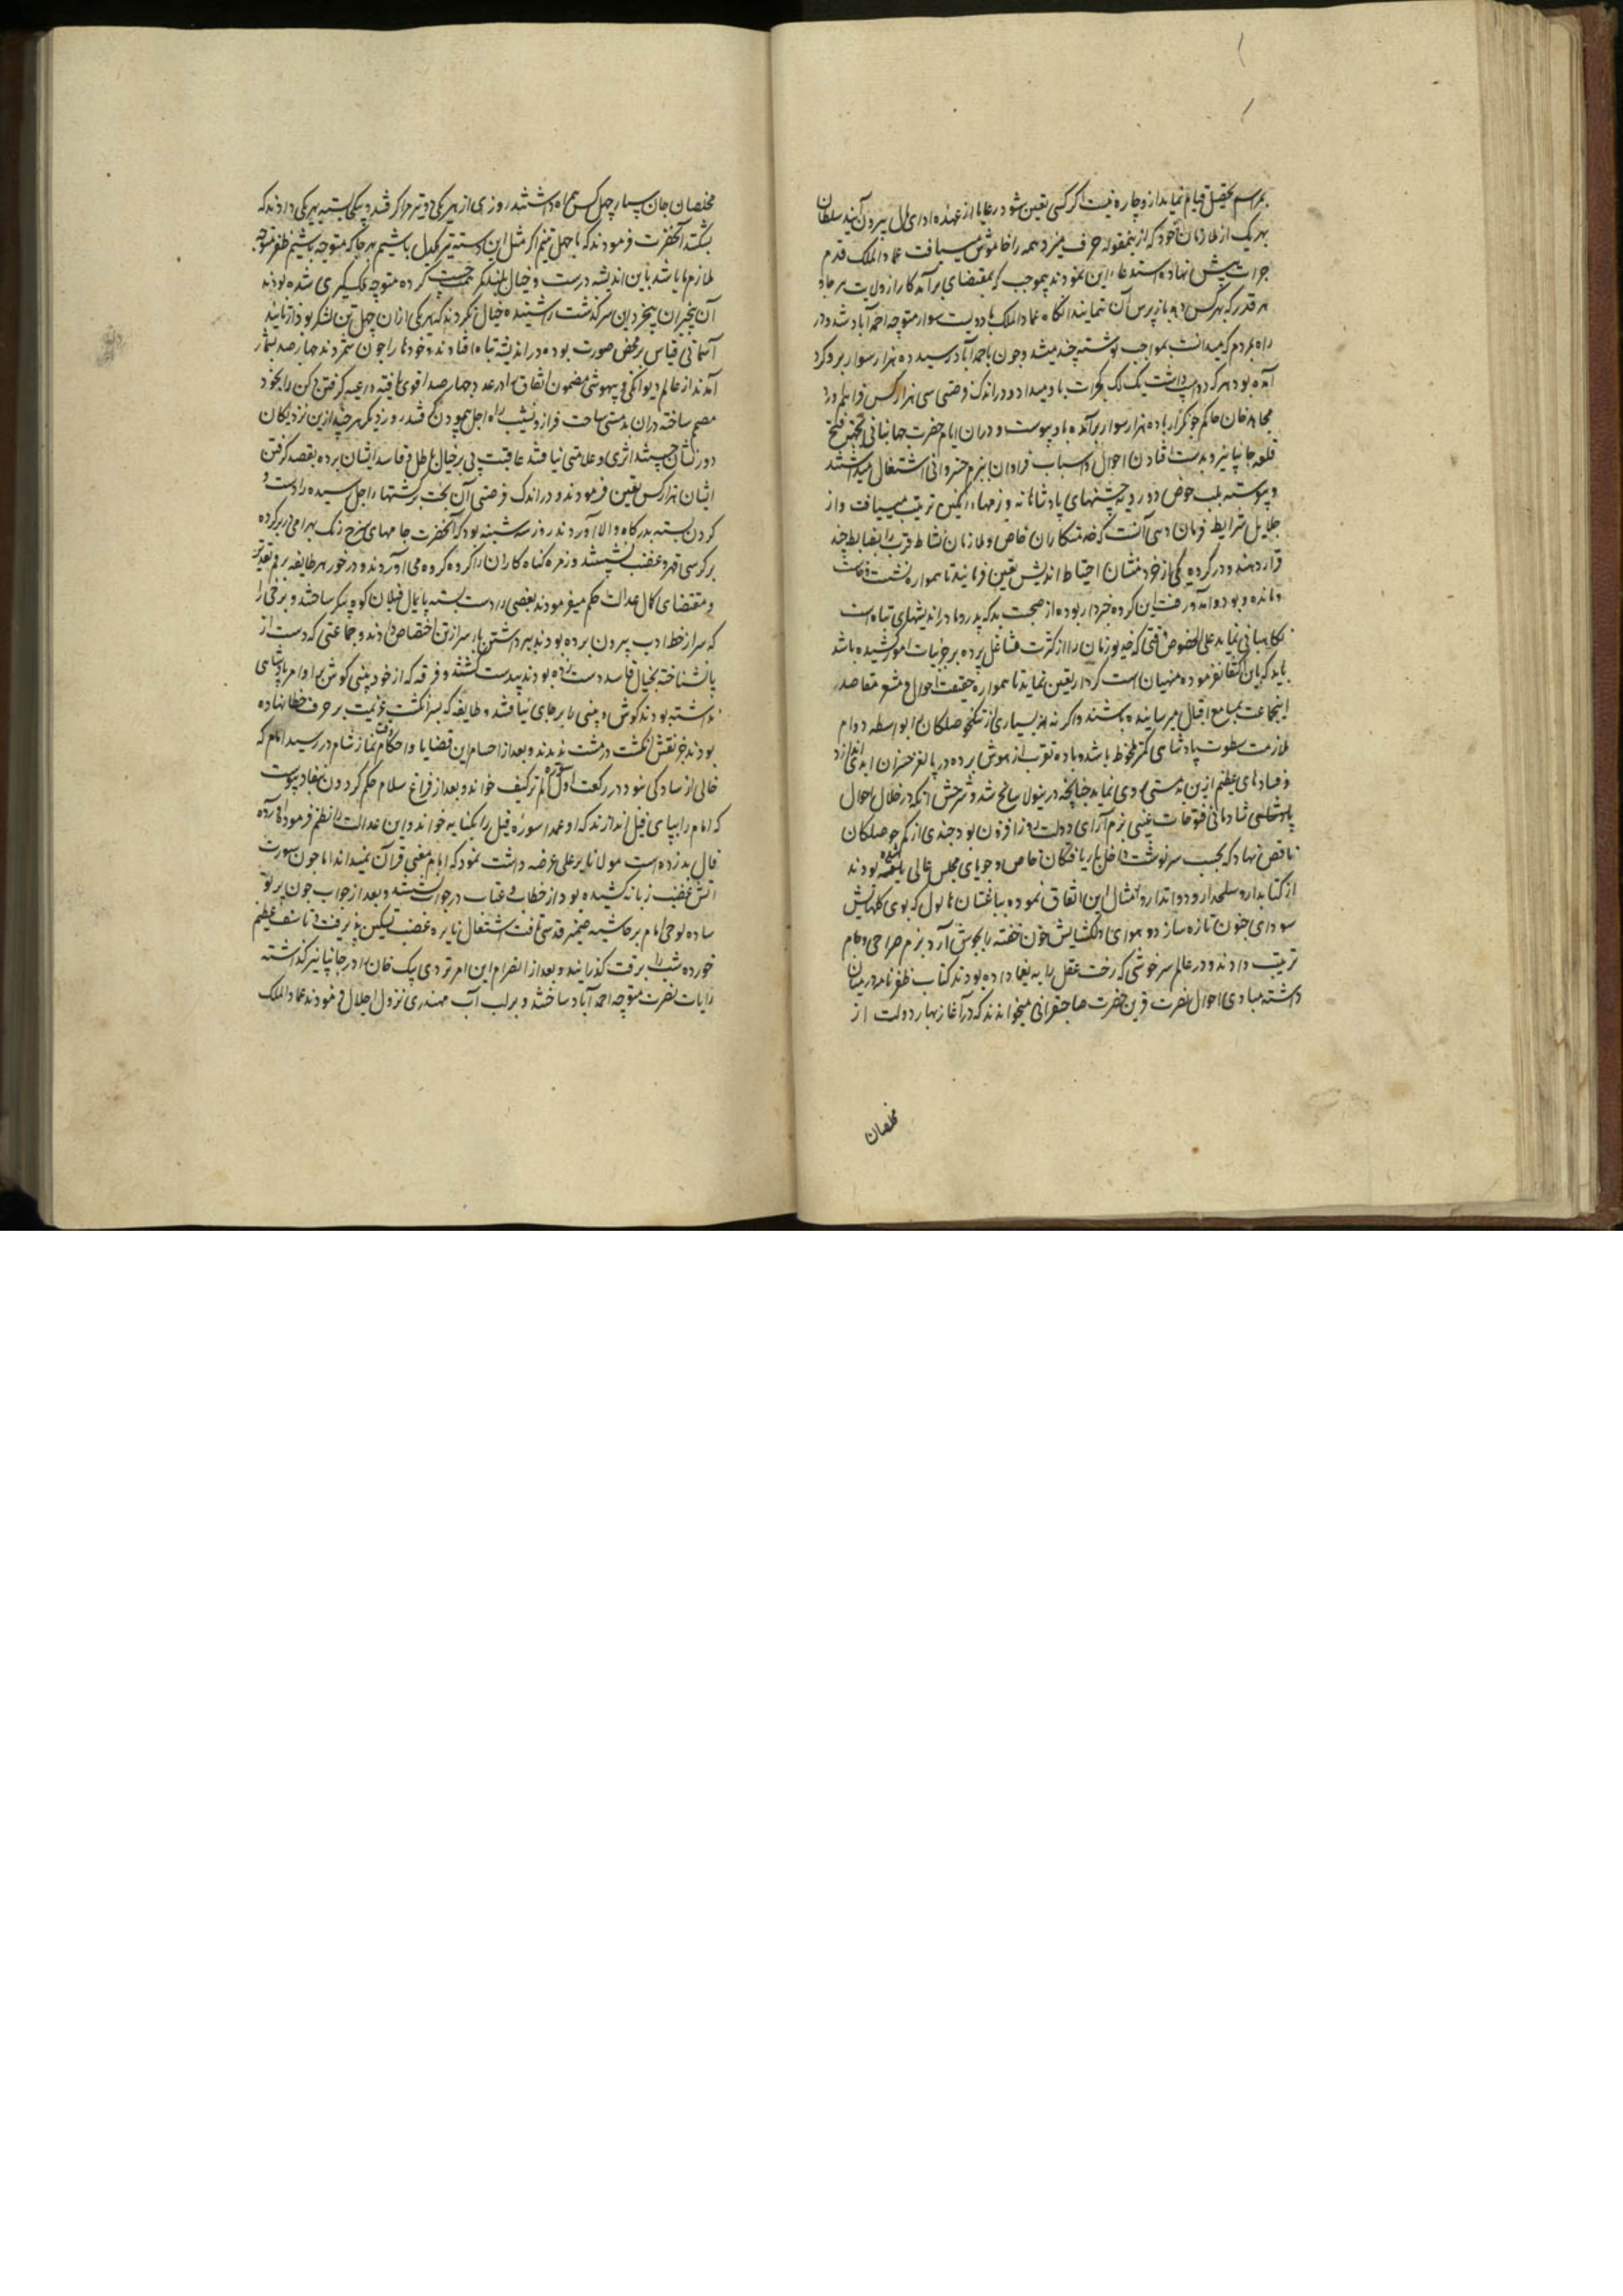 بمراسم تحصیل قیام نماید از و چاره نیست اگر کسی تعین شود رعایا از عهده ادای مال بیرون آیند سلطان
بهر یک از ملازمان خود که ازینمقوله حرف میزد همه را خاموش میسیافت عماد الملک قدم
جرات پیش نهاده استدعاء این نمودند بموجب که بمقتضای برآمد کار از ولایت هر جا و
هر قدر که بهر کس دهد بازپرس آن ننمایند انگاه عماد الملک با دویست سوار متوجه احمد آباد شد و در
راه بمردم که میدانست مواجب نوشته چند میشد و چون باحمد آباد رسید ده هزار سوار برو گرد
آمده بود هر که دو اسپ داشت یک لک گجرات باو میداد و در اندک فرصتی سی هزار کس فراهم آورد
مجاهد خان حاکم جونکر با ده هزار سوار برآمده باو پیوست و دران ایام حضرت جهانبانی بجهت فتح
قلعه جانپانیر و بدست افتادن اموال و اسباب فراوان ببزم خسروانی اشتغال میداشتند
و پیوسته بلب حوض دورویه جشنهای پادشاهانه و بزمهاء رنگین ترتیب میسیافت و از
جلایل شرایط فرمان دهی آنست که خدمتکاران خاص و ملازمان بساط قرب را بضابطه چند
قرار دهند و در هر گروه یکی از خردمندان احتیاط اندیش تعین فرمایند تا همواره نشست و خاست
و مانده و بود و آمد و رفت این گروه خبردار بوده از صحبت بد که پدر و مادر اندیشهای تباه است
نگاهبانی نماید علی الخصوص وقتی که خدیو زمان را از کثرت مشاغل پرده بر جزئیات امور کشیده باشد
باید که بآن اکتفا نفرموده منهیان راست کردار تعین نماید تا همواره حقیقت احوال و مشع مقاصد
اینجماعت بمسامع اقبال میرسانیده باشند و اگر نه از بسیاری از تنگ حوصلکان را بواسطه دوام
ملازمت سطوت پادشاهی کمتر ملحوظ باشد و باده تقرب از هوش برده در پا لغز خسران ابدی اندازد
و فسادهای عظیم ازین بدمستی روی نماید چنانچه درینولا سانح شد و شرحش آنکه در خلال احوال
پادشاهی شادمانی فتوحات غیبی بزم آرای دولت روز افزون بود چندی از کم حوصلکان
ناقص نهاد که بحسب سرنوشت داخل باریافتگان خاص و جویای مجلس عالی یافته بودند
از کتابدار و سلحدار و دواتدار و امثال این اتفاق نموده بباغستان هالول که بوی گلهایش
سودای جنون تازه سازد و هوای دلکشایش خون خفته را بجوش آرد بزم صراحی و جام
ترتیب دادند و در عالم سرخوشی که رخت عقل را به یغما داده بودند کتاب ظفرنامه در میان
داشته مبادی احوال نصرت قرین حضرت صاحبقرانی میخواندند که در آغاز بهار دولت از
مخلصان
مخلصان جان سپار چهل کس همراه داشتند روزی از هر یکی دو تیر را گرفتند و یکجا بسته بهر یکی دادند که
بشکند آنحضرت فرمودند که ما چهل تنیم اگر مثل این دسته تیر یکدل باشیم بهر جا که متوجه باشیم ظفر متوجه
ملازم ما باشد باین اندیشه درست و خیال بلند کمر همت چست کرده متوجه ملک گیری شده بودند
آن بیخبران بیخرد این سرگذشت را شنیده خیال نکردند که هر یکی از ان چهل تن لشکر بود از تایید
آسمانی قیاس بر محض صورت بوده در اندیشه تباه افتادند و خود را چون شمردند چهار صد بشمار
آمدند از عالم دیوانگی و بیهوشی مضمون اتفاق را در عدد چهار صد اقوی یافته داعیه گرفتن دکن را بخود
مصمم ساخته دران بدمستی ساحت فراز و نشیب راه اجل پیمودن گرفتند روز دیگر هر چند ازین نزدیکان
دور نشان جستند اثری و علامتی نیافتند عاقبت پی بر خیال باطل و فاسد ایشان برده بقصد گرفتن
ایشان هزار کس تعین فرمودند و در اندک فرصتی آن بخت برگشتهاء اجل رسیده را دست و
گردن بسته بدرگاه والا آوردند روز سه شنبه بود که آنحضرت جامهای سرخ رنگ بهرامی در بر کرده
بر کرسی قهر و غضب نشستند و زمره گناه کاران را گروه گروه می آوردند و در خور هر طایفه برقم تقدیر
و مقتضای کمال عدالت حکم میفرمودند بعضی را دست بسته پایمال فیلان کوه پیکر ساختند و برخی را
که سر از خط ادب بیرون برده بودند ببرداشتن بار سر از تن اختصاص دادند و جماعتی که دست از
پا نشناخته بخیال فاسد دست زده بودند بیدست گشتند و فرقه که از خود بینی گوش بر اوامر پادشاهی
نداشته بودند گوش و بینی را بر جای نیافتند و طایفه که سرانگشت عزیمت بر حرف خطا نهاده
بودند جز نقش انگشت در مشت ندیدند و بعد از احسام این قضایا و احکام وقت نماز شام در رسید امام که
خالی از سادگی نبود در رکعت اول سوره الم تر کیف خواند و بعد از فراغ سلام حکم گردون نفاذ پیوست
که امام را بپای فیل اندازند که او عمدا سوره فیل را بکنایه خوانده و این عدالت را ظلم فرمودۀ آورده
فال بد زده است مولانا پیر علی عرضه داشت نمود که امام معنی قرآن نمیداند اما چون سورت
آتش غضب زبانه کشیده بود از خطاب و عتاب در جواب شنیده و بعد از جواب چون پرتو
ساده لوحی امام بر حاشیه ضمیر قدسی تافت اشتعال نایره غضب تسکین پذیرفت و تاسف عظیم
خورده شب را برقت گذرانید و بعد از انصرام این امر تردی بیک خان را در جانپانیر گذاشته
رایات نصرت متوجه احمد آباد ساختند و بر لب آب مهندری نزول اجلال فرمودند عماد الملک